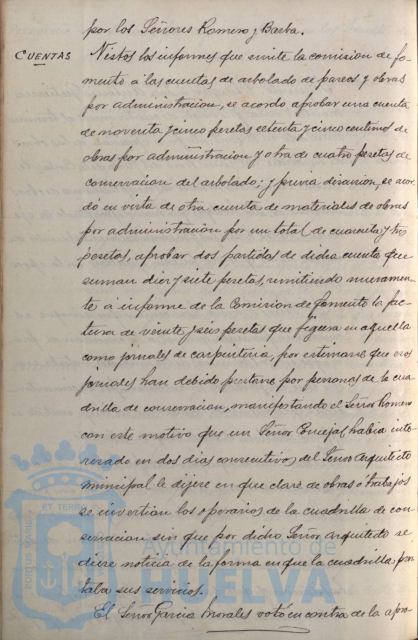 por los Señores Romero y Barba.
CUENTAS
Vistos los informes que emite la comision de fo-
mento á las cuentas de arbolado de paseos y obras
por administracion, se acordo aprobar una cuenta
de noventa y cinco pesetas setenta y cinco centimos de
obras por administracion y otra de cuatro pesetas de
conservacion del arbolado; y previa discusion, se acor-
dó en vista de otra cuenta de materiales de obras
por administracion por un total de cuarenta y tres
pesetas, aprobar dos partidas de dicha cuenta que
suman diez y siete pesetas, remitiendo nuevamen-
te á informe de la Comision de fomento la fac-
tura de veinte y seis pesetas que figura en aquella
como jornales de carpinteria, por estimarse que esos
jornales han debido prestarse por personas de la cua-
drilla de conservacion, manifestando el Señor Romero
con este motivo que un Señor Concejal habia inte-
resado en dos dias consecutivos del Señor Arquitecto
municipal le dijere en que clase de obras ó trabajos
se invertian los operarios de la cuadrilla de con-
servacion sin que por dicho Señor arquitecto se
diere noticia de la forma en que la cuadrilla pres-
taba sus servicios.
El Señor Garcia Morales votó en contra de la apro-
PORTUS MARIS
ET TERRAE
Ayuntamiento de
HUELVA